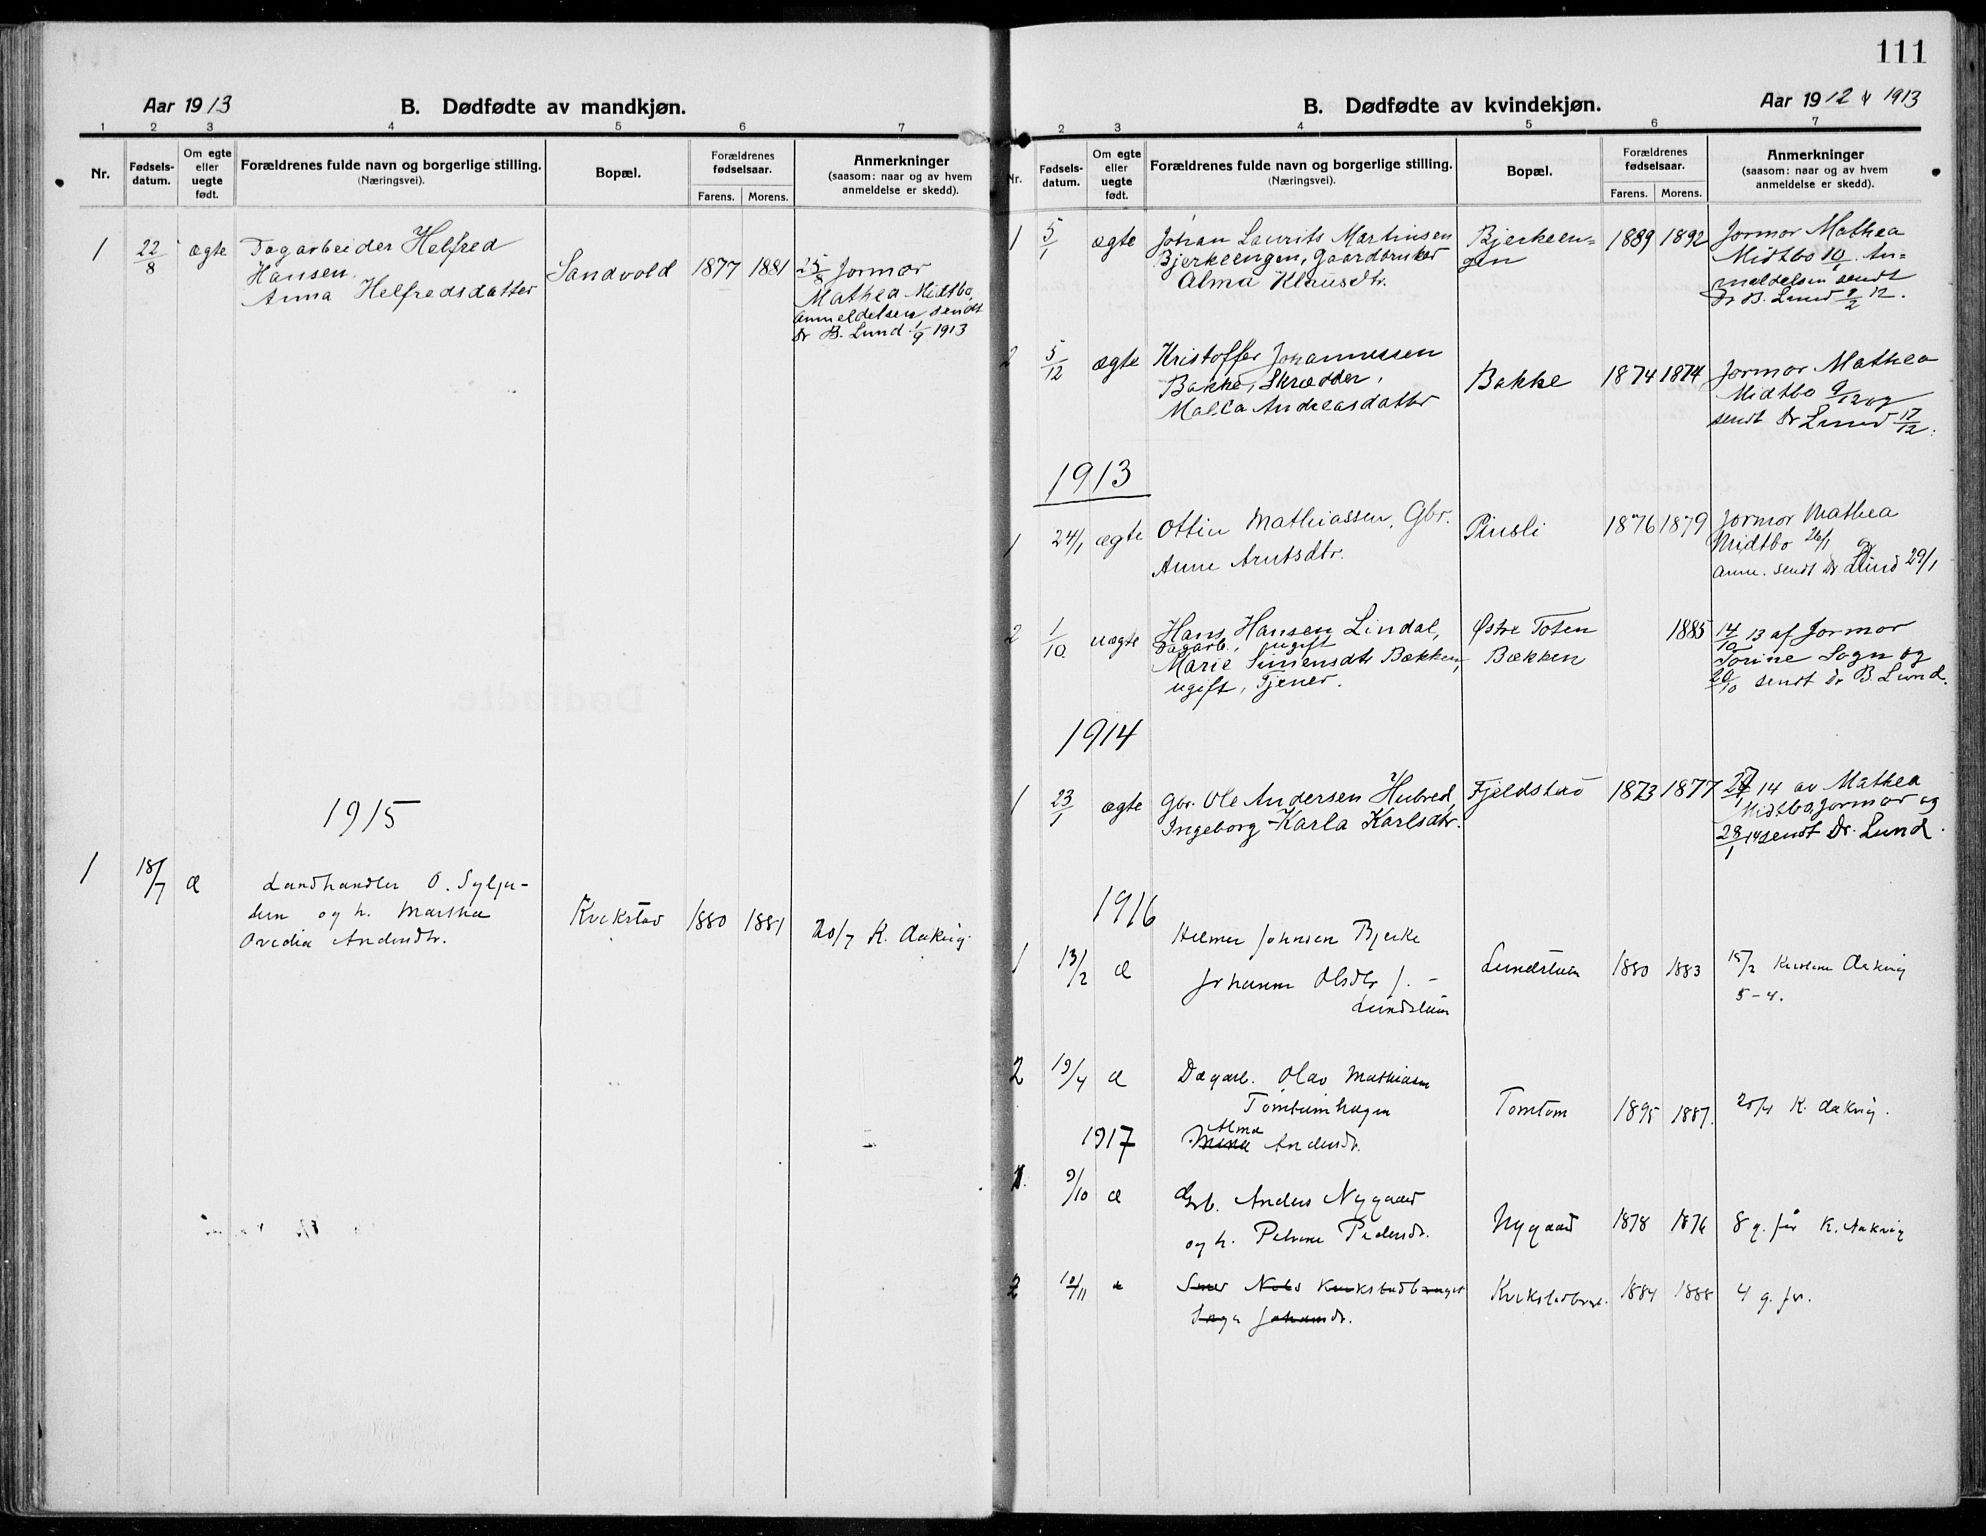 Aar 1913
B. Dødfødte av mandkjøn.
1 2 3 4 5 6 7
Nr.
Fødsels-
datum.
Om egte
eller
uegte
født.
Forældrenes fulde navn og borgerlige stilling.
(Næringsvei).
Bopæl.
Forældrenes
fødselsaar.
Farens. Morens.
Anmerkninger
(saasom: naar og av hvem
anmeldelse er skedd).
1 22/8 ægte Dagarbeider Helfred
Hansen
Anna Helfredsdatter
Sandvold 1877 1881
25/8 Jormor
Mathea Midtbo,
anmeldelsen sendt
Dr B. Lund 1/9 1913
1915
1 18/7 æ Landhandler O. Sylju-
og h. Martha
Ovedia Andersdtr.
Kvekstad 1880 1881 20/7 K. Aakvig.
111
B. Dødfødte av kvindekjøn.
Aar 1912 & 1913
1 2 3 4 5 6 7
Nr.
Fødsels-
datum.
Om egte
eller
uegte
født.
Forældrenes fulde navn og borgerlige stilling.
(Næringsvei).
Bopæl.
Forældrenes
fødselsaar.
Farens. Morens.
Anmerkninger
(saasom: naar og av hvem
anmeldelse er skedd).
1 5/1 ægte Johan Laurits Martinsen
Bjerkeengen, Gaardbruker
Alma Klausdtr.
Bjerkeen=
gen
1889 1892
Jormor Mathea
Midtbo 10/1. An=
meldelsen sendt
Dr B. Lund 9/2 12.
2 5/12 ægte Kristoffer Johannessen
Bakke, Skrædder,
Andreasdatter
Bakke 1874 1874
Jormor Mathea
Midtbo 9/12 og
sendt Dr Lund 17/12.
1913
1 24/1 ægte Ottin Mathiassen, Gbr.
Anne Arntsdtr.
Pinsli 1876 1879
Jormor Mathea
Midtbo 26/1 og
anm. sendt Dr Lund 29/1
2 1/10 uægte Hans Hansen Lindal,
Dagarb., ugift
Marie Simensdtr Bækken,
ugift, Tjener.
Østre Toten
Bækken
1885
14/10 13 af Jormor
Torine Sogn og
20/10 sendt Dr B. Lund.
1914
1 23/1 ægte Gbr. Ole Andersen Hubred,
Ingeborg Karla Karlsdtr.
Fjeldstad 1873 1877
27/1 14 av Mathea
Midtbo, Jormor og
28/1 14 sendt Dr. Lund.
1916
1 13/2 æ Helmer Johnsen Bjerke
Johanne Olsdtr f. -
Lundstuen
Lundstuen 1880 1883
15/2 Aakvig
5-4.
2 19/4 æ Dagarb. Olav Mathiasen
Tømtumhagen
Alma
Mina Andersdtr.
Tomtom 1895 1887. 20/4 K. Aakvig.
1917
1. 9/10 æ Grb. Anders Nygaard
og h. Pedersdtr.
Nygaard 1878 1876 8 g. før K. Aakvig
2 10/11 æ Kvikstadbraget
Johansdtr.
1884 1888 4 g. før.